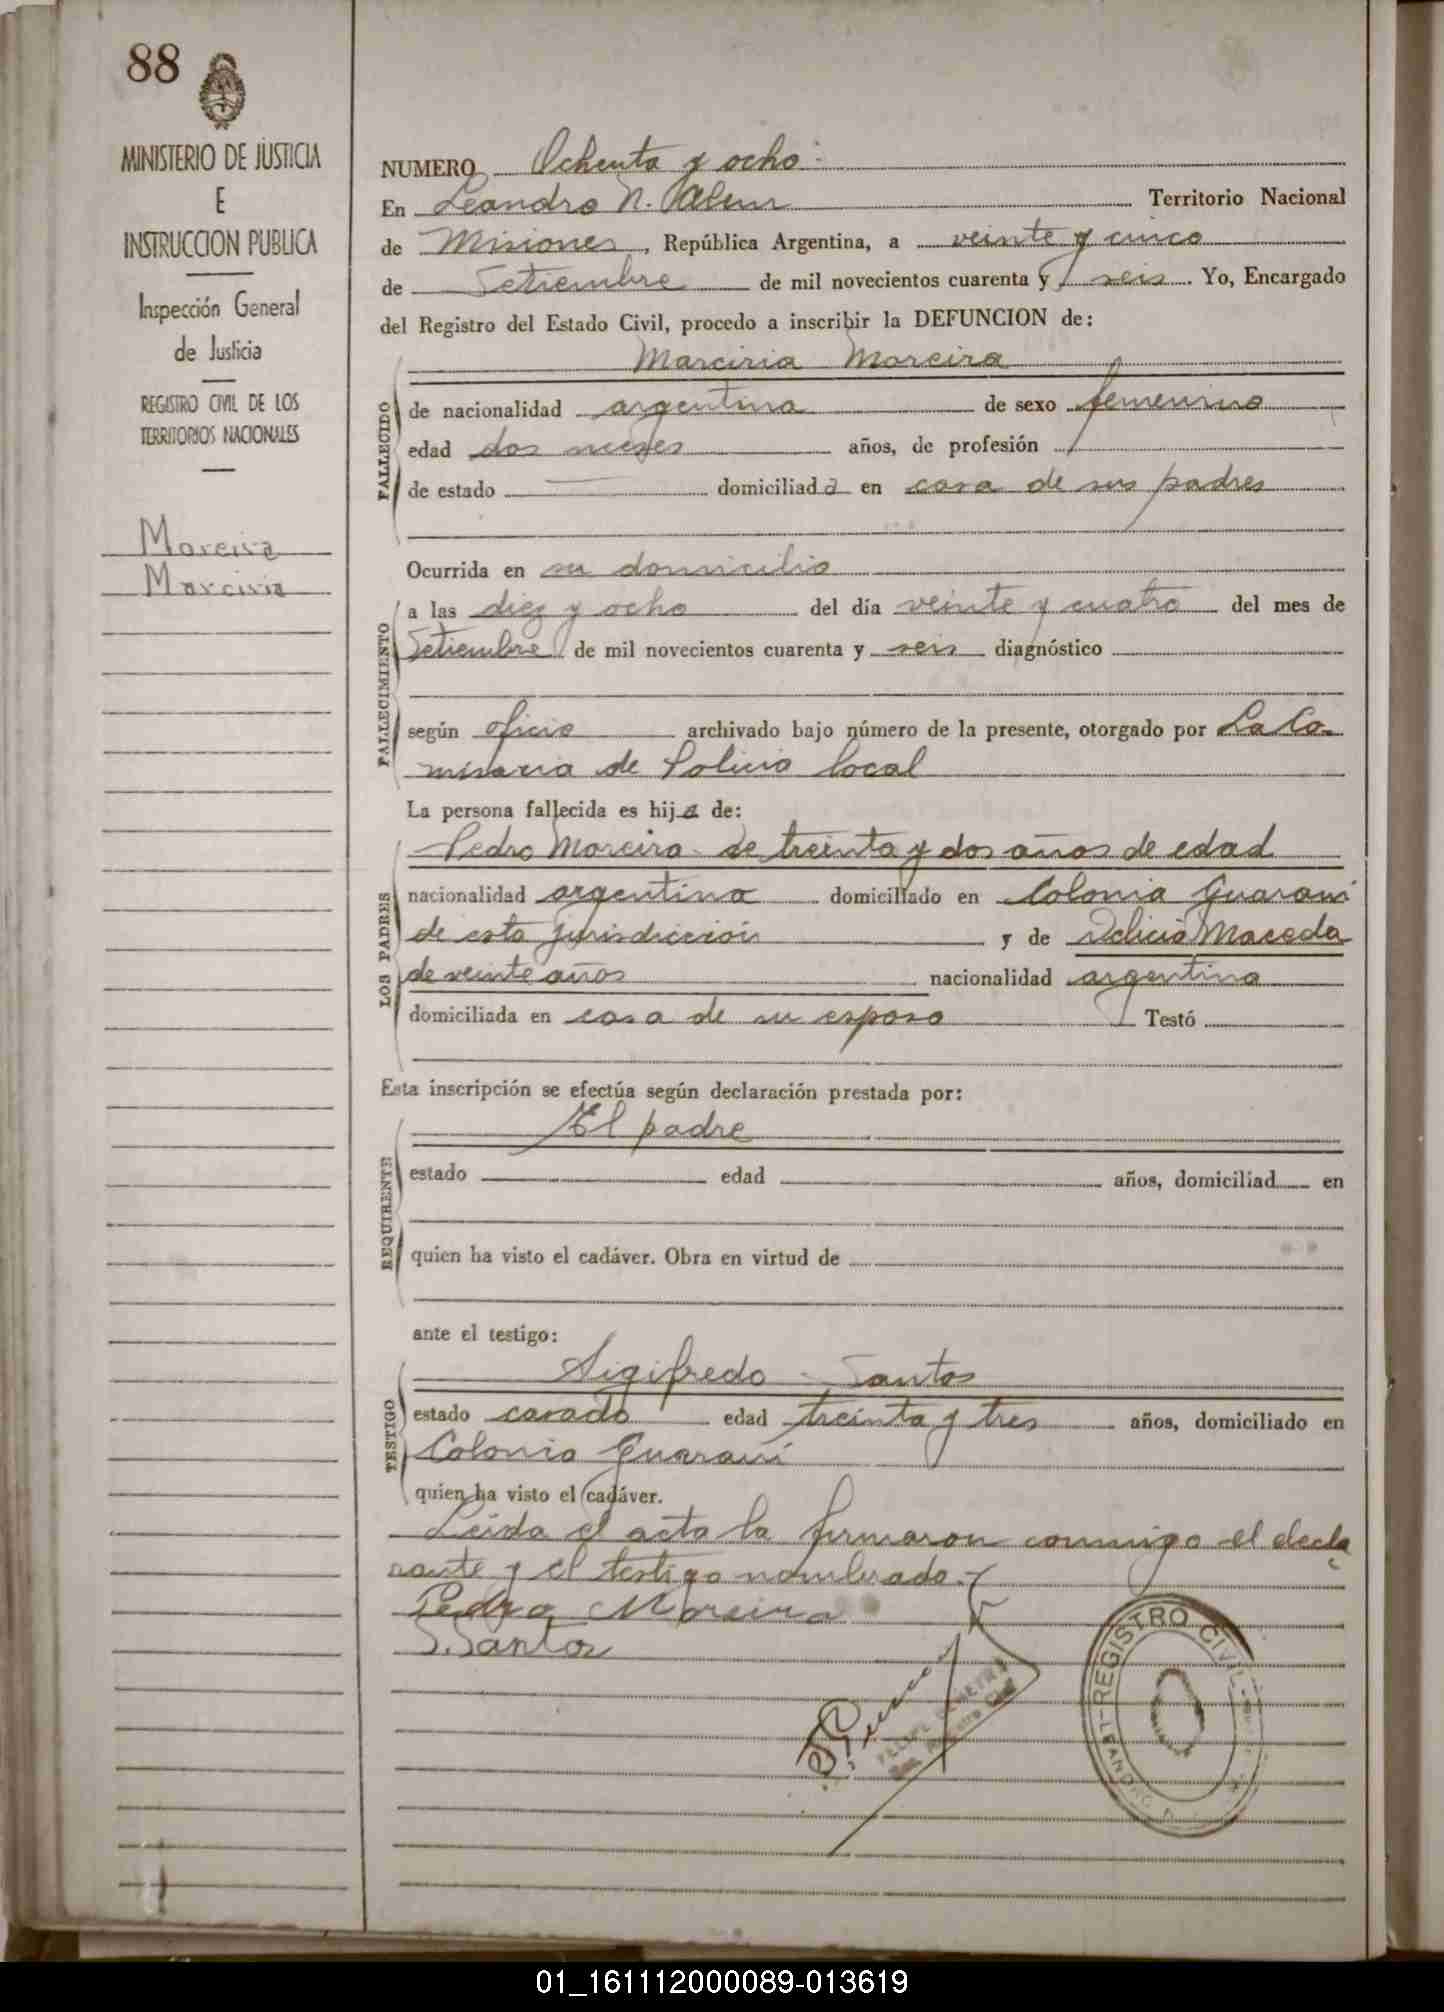 88
MINISTERIO DE JUSTICIA
E
INSTRUCCION PUBLICA
Inspección General
de Justicia
REGISTRO CIVIL DE LOS
TERRITORIOS NACIONALES
Moreira
Marciria
NUMERO Ochenta y ocho
En Leandro N. Alem Territorio Nacional
de Misiones, República Argentina, a veinte y cinco
de Setiembre de mil novecientos cuarenta y seis. Yo, Encargado
del Registro del Estado Civil, procedo a inscribir la DEFUNCION de:
Marciria Moreira
FALLECIDO
de nacionalidad argentina de sexo femenino
edad dos meses años, de profesión
de estado — domiciliada en casa de sus padres
Ocurrida en su domicilio
FALLECIMIENTO
a las diez y ocho del día veinte y cuatro del mes de
Setiembre de mil novecientos cuarenta y seis diagnóstico
según oficio archivado bajo número de la presente, otorgado por La Co-
misaria de Policia local
La persona fallecida es hija de:
LOS PADRES
Pedro Moreira de treinta y dos años de edad
nacionalidad argentina domiciliado en Colonia Guarani
de esta jurisdiccion y de Delicia Maceda
de veinte años nacionalidad argentina
domiciliada en casa de su esposo Testó
Esta inscripción se efectúa según declaración prestada por:
REQUIRENTE
El padre
estado edad años, domiciliad en
quien ha visto el cadáver. Obra en virtud de
ante el testigo:
TESTIGO
Sigifredo Santos
estado casado edad treinta y tres años, domiciliado en
Colonia Guaraní
quien ha visto el cadáver.
Leida el acta la firmaron conmigo el decla
rante y el testigo nombrado.-
Pedro Moreira
S. Santos
REGISTRO CIVIL
LEANDRO N.
01_161112000089-013619